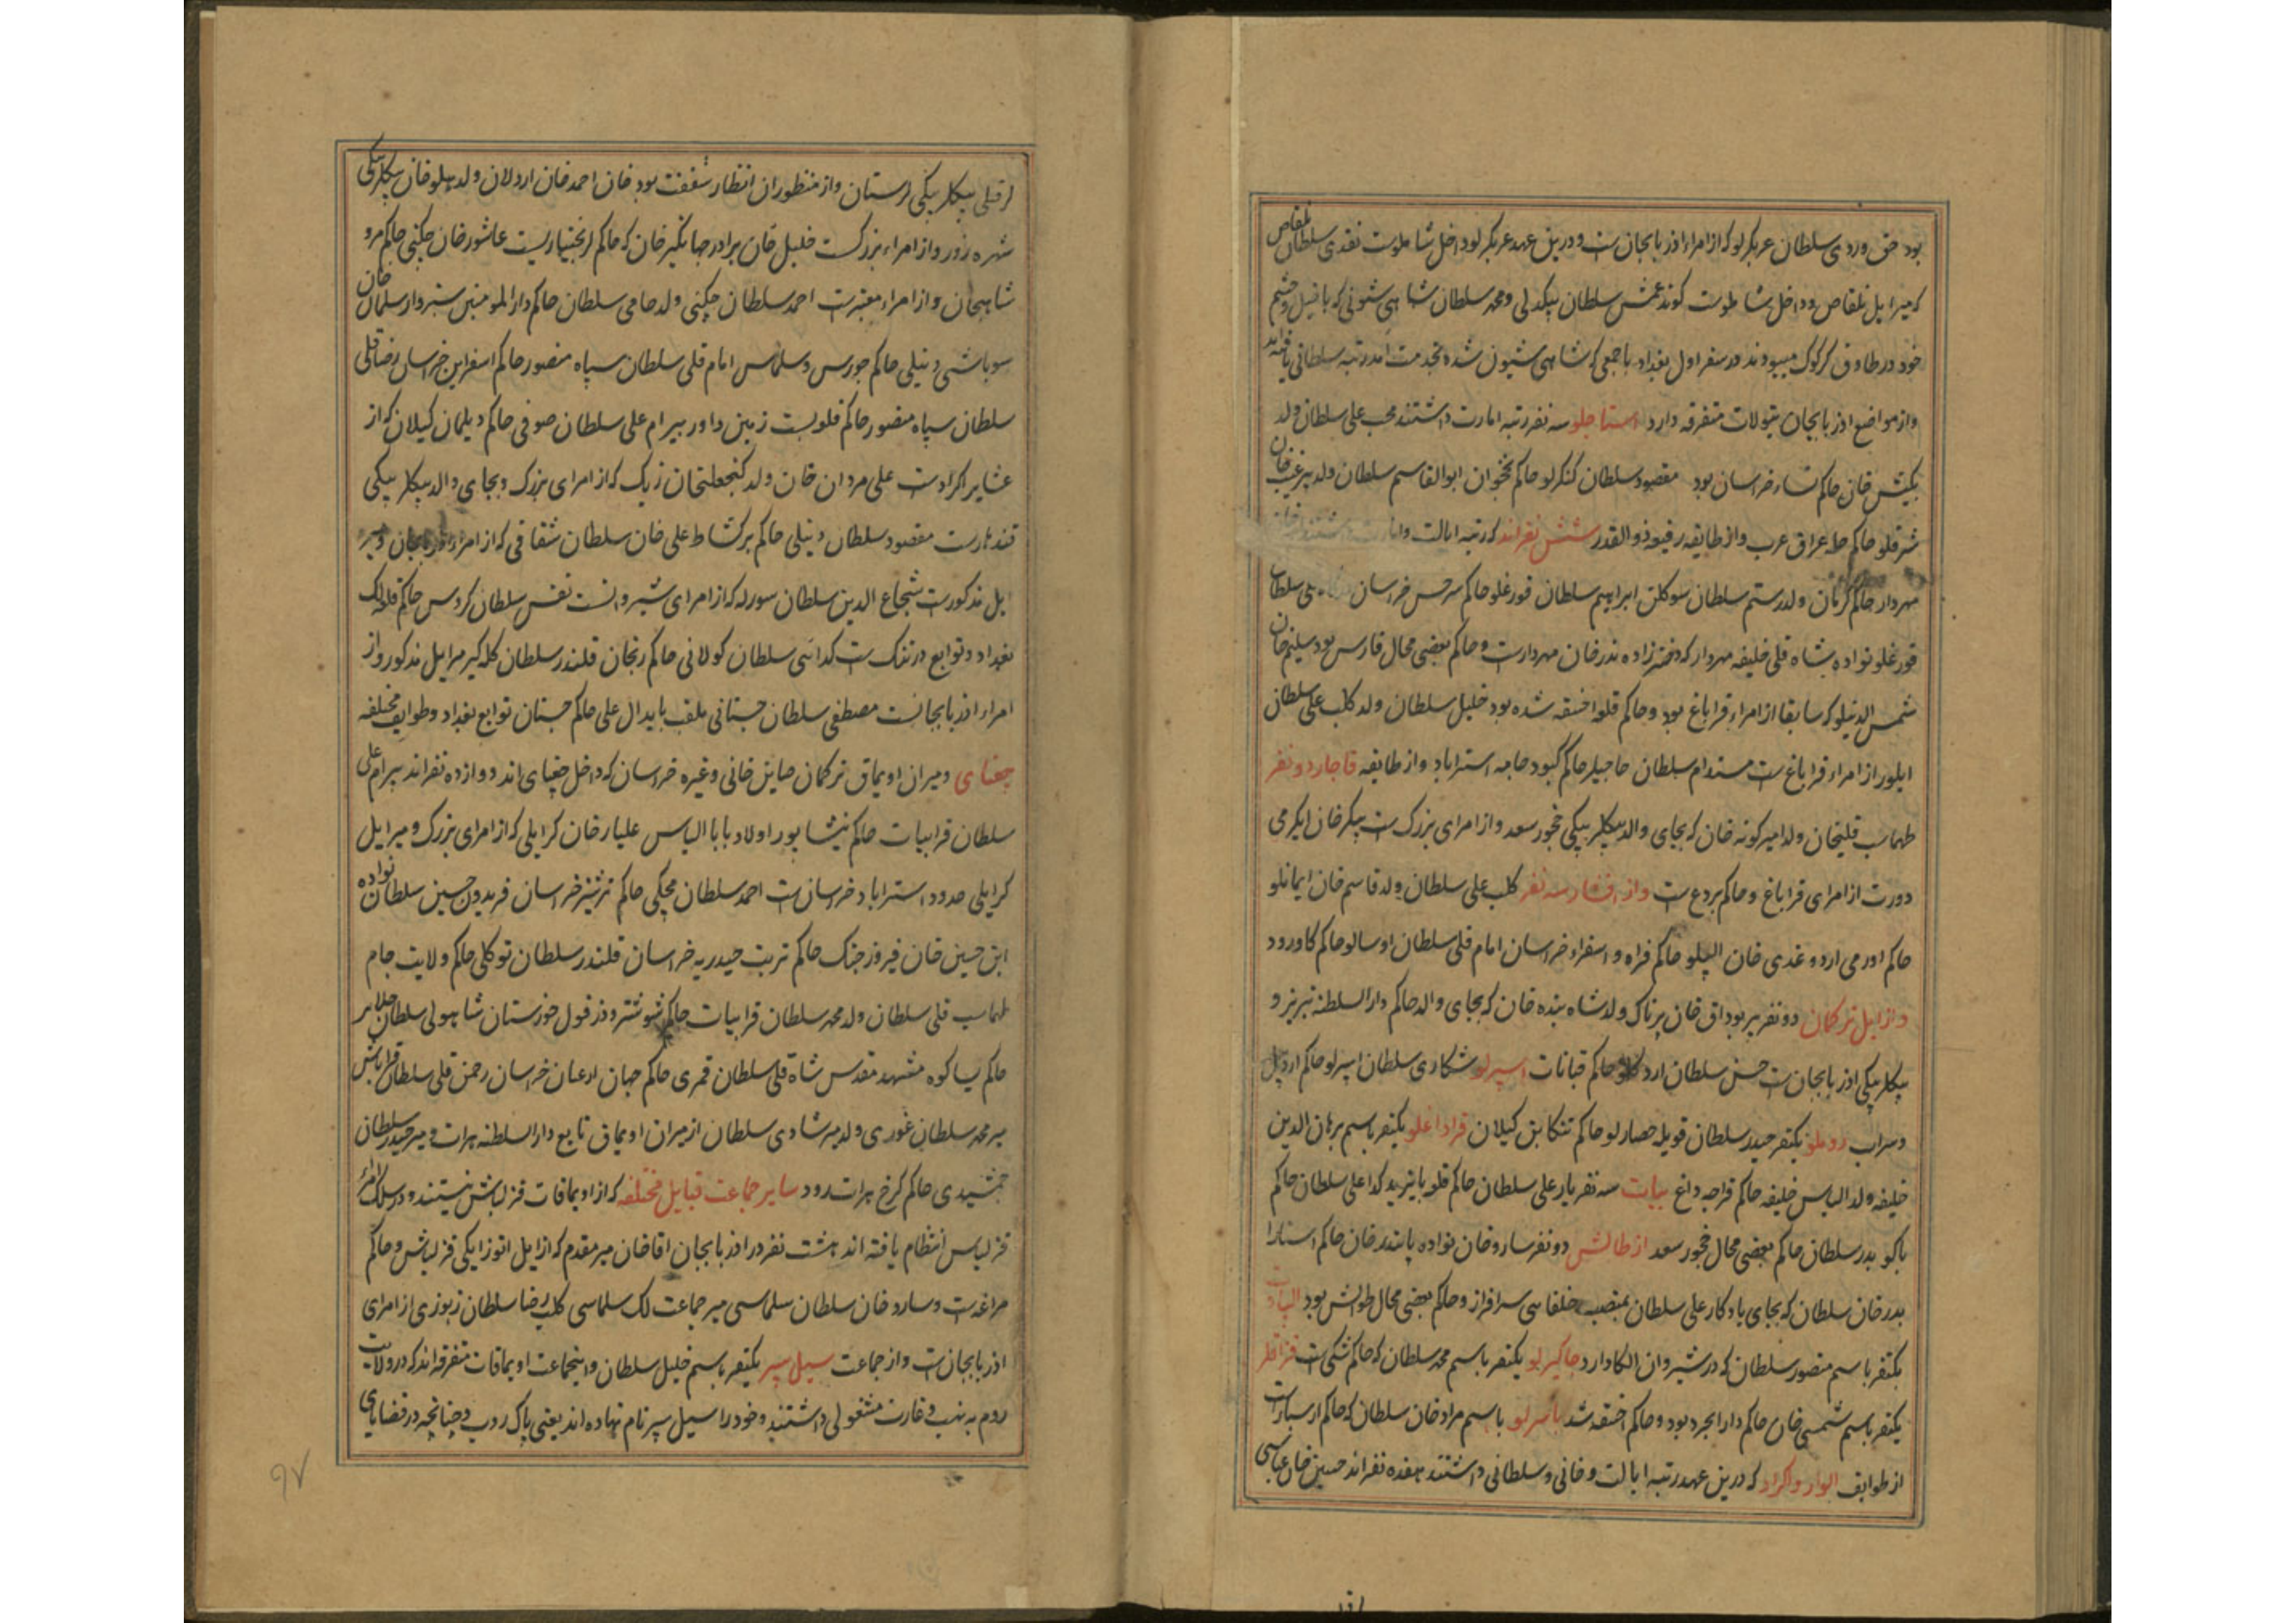 بود حق وردی سلطان عربکرلو که از امراء اذربایجان ست و درین عهد عربکرلو داخل شاملوست نقدی سلطان بلقاص
که میر ایل بلقاص و داخل شاملوست کوندغمش سلطان بیکدلی و محمد سلطان شاهی شونی که با خیل و حشم
خود در طاوق کرکوک میبودند در سفر اول بغداد با جمعی که شاهی شیون شده بخدمت امد رتبه سلطانی یافته اند
و از مواضع اذربایجان تیولات متفرقه دارد استاجلو سه نفر رتبه امارت داشتند محب علی سلطان ولد
بکتش خان حاکم نساء خراسان بود مقصود سلطان کنکرلو حاکم نخجوان ابوالقاسم سلطان ولد پیر غیب خان
شرفلو حاکم حله عراق عرب و از طایفه رفیعه ذوالقدر شش نفراند که رتبه ایالت و امارت داشتند
مهردار حاکم کرمان ولد رستم سلطان سوکلن ابراهیم سلطان قورغلو حاکم سرخس خراسان علی سلطان
قورغلو نواده شاه قلی خلیفه مهردار که دختر زاده بدر خان مهردارست و حاکم بعضی محال فارس بود سلیم خان
شمس الدینلو که سابقا از امراء قراباغ بود و حاکم قلعه اخسقه شده بود خلیل سلطان ولد کلب علی سلطان
ایلور از امراء قراباغ ست مستدام سلطان حاجیلر حاکم کبود جامه استراباد و از طایفه قاجار دو نفر
طهماسب قلیخان ولد امیر کونه خان که بجای والد بیکلر بیکی چخور سعد و از امرای بزرک ست بیکر خان ایکرمی
دورت از امرای قراباغ و حاکم بردع ست و از افشار سه نفر کلب علی سلطان ولد قاسم خان ایمانلو
حاکم اورمی اردوغدی خان الپلو حاکم فراه و اسفزاء خراسان امام قلی سلطان اوسالو حاکم کاورود
و از ایل ترکمان دو نفر پیر بوداق خان پرناک ولد شاه بنده خان که بجای والد حاکم دارالسلطنه تبریز و
بیکلر بیکی اذربایجان ست حسن سلطان اردکلو حاکم قبانات اسپرلو شکاری سلطان اسپرلو حاکم اردبیل
و سراب روملو یکنفر حیدر سلطان قویله حصارلو حاکم تنکابن کیلان قراداغلو یکنفر باسم برهان الدین
خلیفه ولد الیاس خلیفه حاکم قراجه داغ بیات سه نفر یار علی سلطان حاکم قلعه بایزید کدا علی سلطان حاکم
باکو بدر سلطان حاکم بعضی محال چخور سعد از طالش دو نفر سارو خان نواده بایندر خان حاکم استارا
بدر خان سلطان که بجای یادکار علی سلطان بمنصب خلفایی سرافراز و حاکم بعضی محال طوالش بود الپاوت
یکنفر باسم منصور سلطان که در شیروان الکا دارد جاکیرلو یکنفر باسم محمد سلطان که حاکم شکی ست قزاقلر
یکنفر باسم شمسی خان حاکم دارابجرد بود و حاکم اخسقه شد بایبرلو باسم مراد خان سلطان که حاکم ارسبارست
از طوایف الوار و اکراد که درین عهد رتبه ایالت و خانی و سلطانی داشتند هفده نفراند حسین خان عباسی
لر قیلی بیکلر بیکی لرستان و از منظوران انظار شفقت بود خان احمد خان اردلان ولد هلو خان بیکلر بیکی
شهره زور و از امراء بزرکست خلیل خان برادر جهانکیر خان که حاکم لر بختیاریست عاشور خان چکنی حاکم مرو
شاهیجان و از امراء معتبرست احمد سلطان چکنی ولد حامی سلطان حاکم دارالمومنین سبزوار سلمان خان
سوباشی دنبلی حاکم جورس و سلماس امام قلی سلطان سیاه منصور حاکم اسفراین خراسان رضا قلی
سلطان سیاه منصور حاکم قلعه بست زمین داور بیرام علی سلطان صوفی حاکم دیلمان کیلان که از
عشایر اکرادست علی مردان خان ولد کنجعلیخان زیک که از امرای بزرک و بجای والد بیکلر بیکی
قندهارست مقصود سلطان دنبلی حاکم برکشاط علی خان سلطان شقاقی که از امراء اذربایجان و میر
ایل مذکورست شجاع الدین سلطان سورله که از امرای شیروانست نفس سلطان کروس حاکم قلعه لک
بغداد و توابع درتنک ست کدائی سلطان کولانی حاکم زنجان قلندر سلطان کله کیر میر ایل مذکور و از
امراء اذربایجانست مصطفی سلطان جستانی ملقب بابدال علی حاکم جستان توابع بغداد و طوایف مختلفه
چغتای و میران اویماق ترکمان صاین خانی و غیره خراسان که داخل چغتای اند دوازده نفراند بیرام علی
سلطان قرا بیات حاکم نیشابور اولاد بابا الیاس علیار خان کرایلی که از امرای بزرک و میر ایل
کرایلی حدود استراباد خراسان ست احمد سلطان مچکی حاکم ترشیز خراسان فریدون حسین سلطان نواده
ابن حسین خان فیروز جنک حاکم تربت حیدریه خراسان قلندر سلطان توکلی حاکم ولایت جام
طهماسب قلی سلطان ولد محمد سلطان قرا بیات حاکم شوشتر و دزفول خوزستان شاهولی سلطان جلایر
حاکم پساکوه مشهد مقدس شاه قلی سلطان قمری حاکم جهان ارغیان خراسان رحمن قلی سلطان قرا باش
میر محمد سلطان غوری ولد میر شادی سلطان از میران اویماق تابع دارالسلطنه هرات و میر حیدر سلطان
جمشیدی حاکم کرخ هرات رود سایر جماعت قبایل مختلفه که از اویماقات قزلباش نیستند و در سلک امراء
قزلباش انتظام یافته اند هشت نفر در اذربایجان اقا خان میر مقدم که از ایل اتوز ایکی قزلباش و حاکم
مراغه ست و سارو خان سلطان سلماسی میر جماعت لک سلماسی کلب رضا سلطان زبوزی از امرای
اذربایجان ست و از جماعت سیل سپر یکنفر باسم خلیل سلطان و اینجماعت اویماقات متفرقه اند که در ولایت
روم به نهب و غارت مشغولی داشتند و خود را سیل سپر نام نهاده اند یعنی پاک روب و چنانچه در قضایای
۹۷